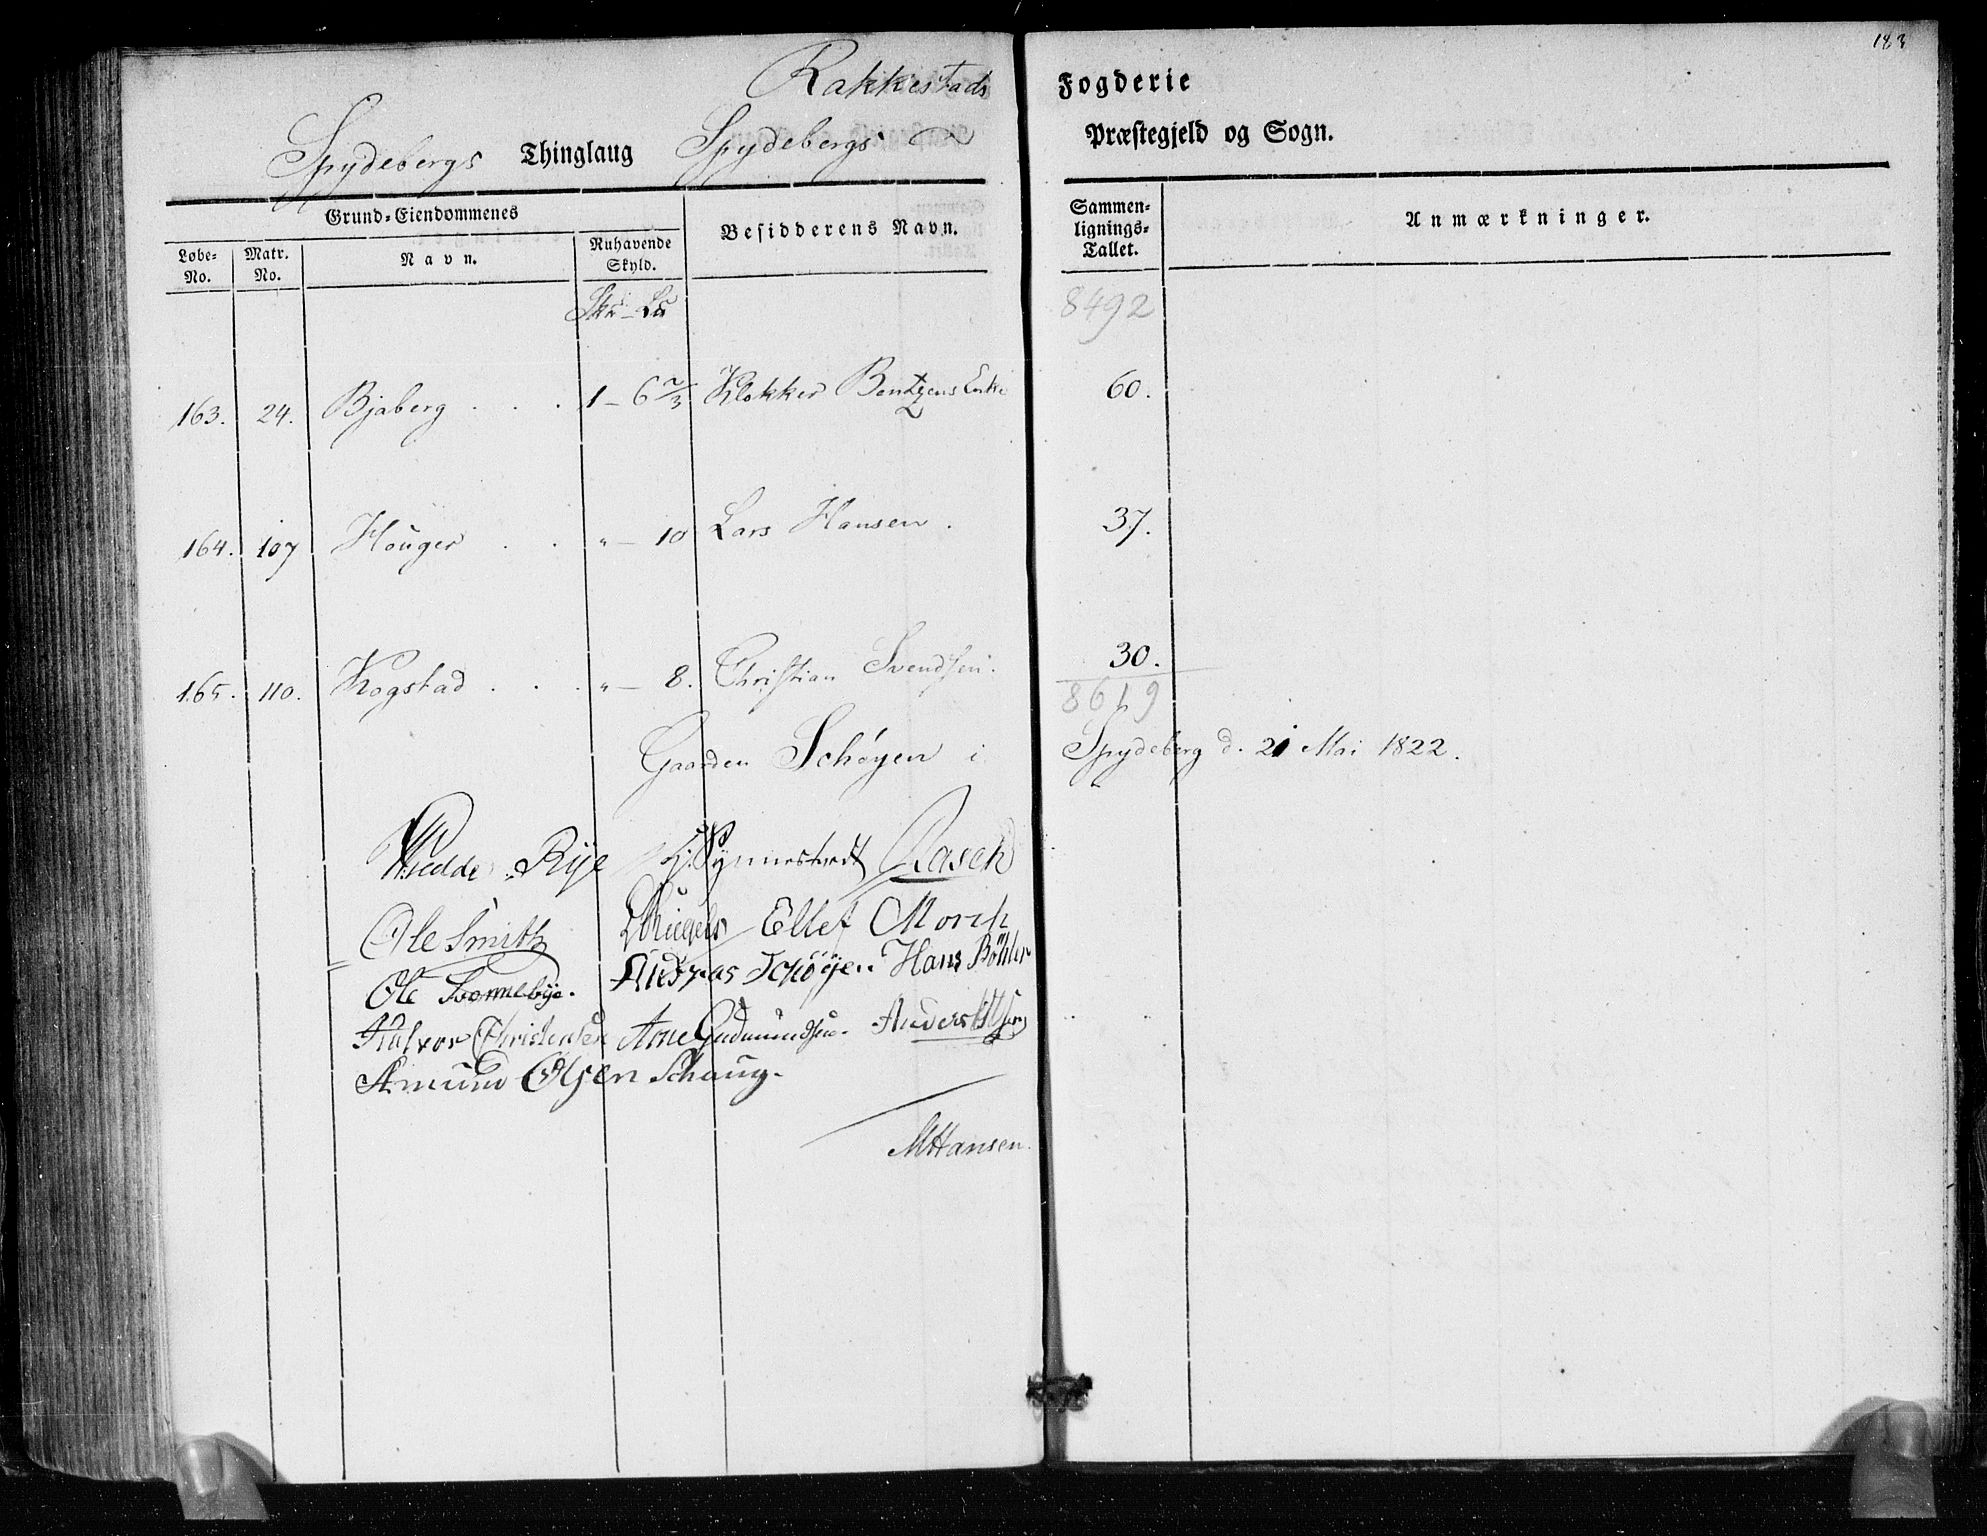 183
Rakkestads Fogderie
Spydebergs Thinglaug Spydebergs Præstegjeld og Sogn.
Grund-Eiendommenes
Løbe-No. Matr. No. Navn. Nuhavende Skyld. Besidderens Navn. Sammenlignings-Tallet. Anmærkninger.
8492
163. 24. Bjaberg . . . 1 – 6 2/3 Klokker Bentzens Enke 60.
164. 107 Houger . . . „ – 10 Lars Hansen . 37.
165. 110. Kogstad . . . „ – 8. Christian Svendsen. 30.
8619
Gaarden Schøyen i Spydeberg d. 21 Mai 1822.
Rye Rasch
Ole Smith Ellef Morch
Ole Svennebye. Andreas Schøyen Hans Bøhler
Halvor Christensen Arne Gudmundsen. Anders
Amund Olsen Schaug.
MHansen.